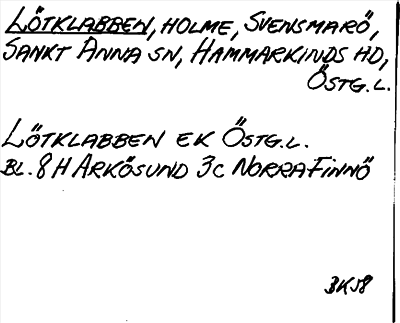 LÖTKLABBEN, HOLME, SVENSMARÖ,
SANKT ANNA SN, HAMMARKINDS HD,
ÖSTG.L.
LÖTKLABBEN EK ÖSTG.L.
BL. 8H ARKÖSUND 3c NORRA FINNÖ
BKJ8